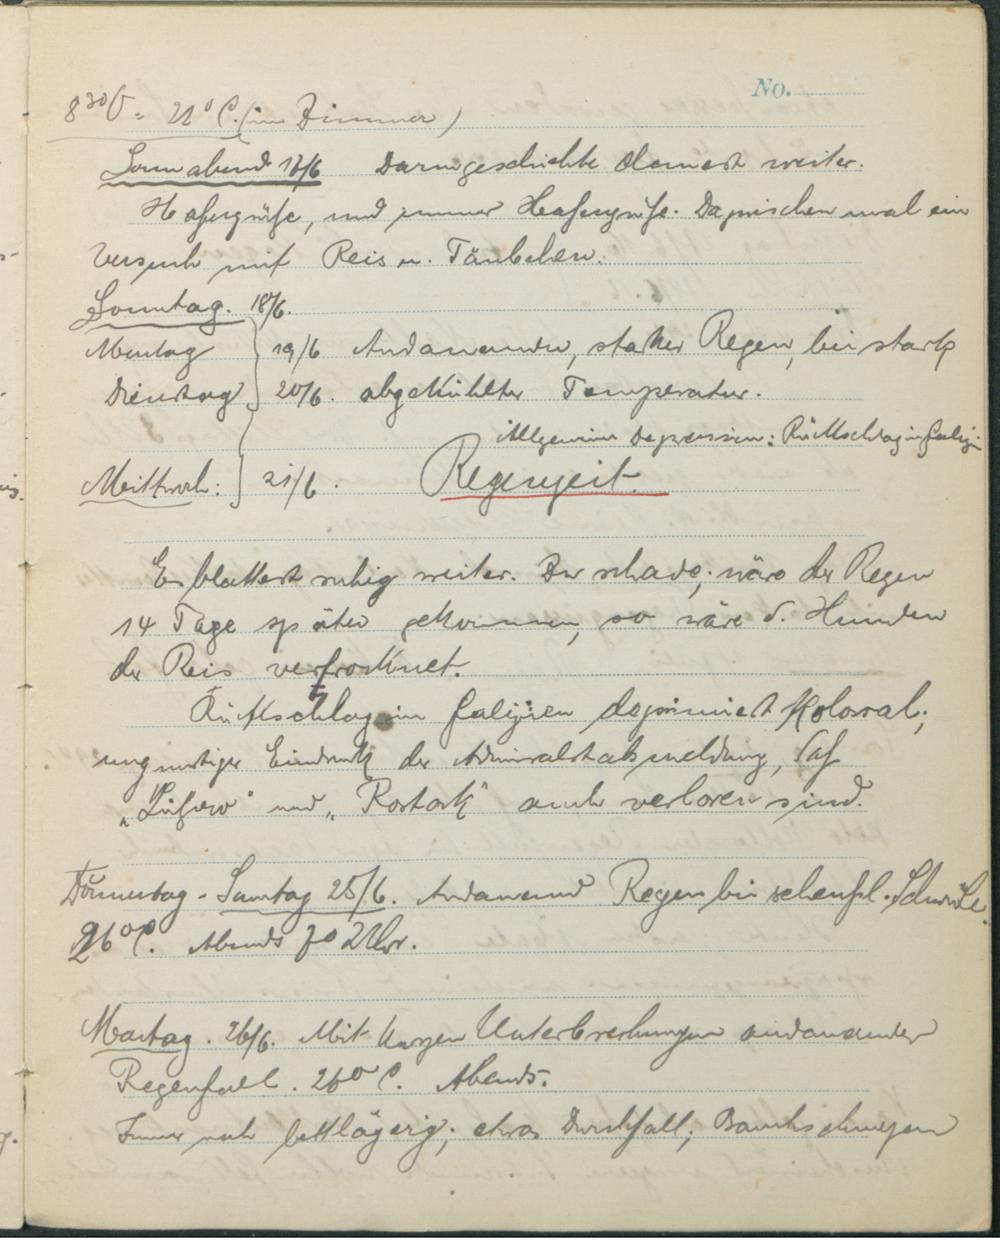 No.
8³⁰ V = 21° C. (im Zimmer)
Sonnabend 17/6 Darmgeschichte dauert weiter.
Hafergrütze, und immer Hafergrütze. Dazwischen mal ein
Versuch mit Reis u. Täubchen.
Sonntag. 18/6.
Montag 19/6 Andauernder, starker Regen, bei stark
Dienstag 20/6. abgekühlter Temperatur.
Allgemeine Depression: Rückschlag in Galizi-
Mittwoch: 21/6. Regenzeit.
Es blattert ruhig weiter. Nur schade, wäre der Regen
14 Tage später gekommen, so wäre d. Hunden
der Reis vertrocknet.
Rückschlag in Galizien deprimiert kolossal;
ungünstiger Eindruck der Admiralstabsmeldung, daß
„Lützow" und „Rostock" auch verloren sind.
Donnerstag - Sonntag 25/6. Andauernd Regen bei scheußl. Schwüle.
26° C. Abends 7⁰ Uhr.
Montag. 26/6. Mit kurzen Unterbrechungen andauernder
Regenfall. 26° C. Abends.
Immer noch bettlägerig; etwas Durchfall; Bauchschmerzen